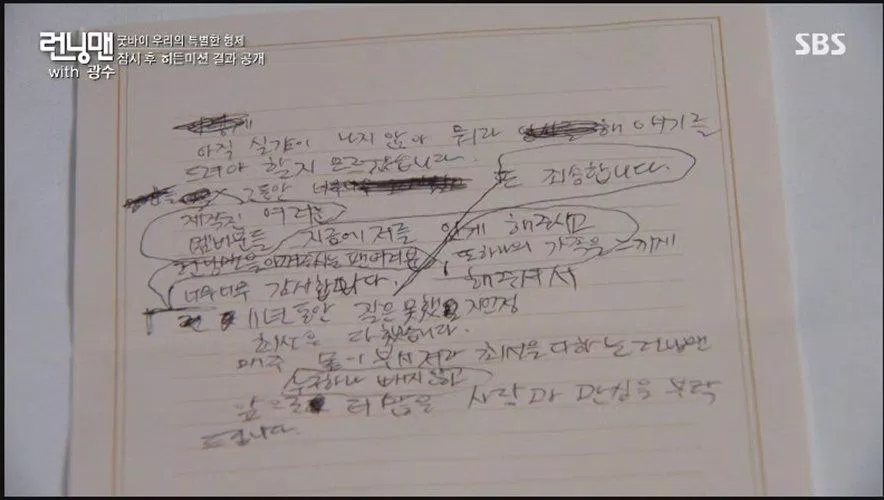 런닝맨
with 광수
굿바이 우리의 특별한 형제
잠시 후 히든미션 결과 공개
SBS
아직 실감이 나지 않아 뭐라 해 얘기를
드려야 할지 모르겠습니다.
그동안 너무 또 죄송합니다.
제작진 여러분
멤버분들 지금에 저를 있게 해주시고
런닝맨을 아껴주시는 팬 여러분, 또하나의 가족을 느끼게
너무너무 감사합니다. 해주셔서
11년 동안 짧은 못했 지만
최선을 다 했습니다.
매주 몸이 부서져라 최선을 다하는 런닝맨
누구하나 빠지지않고
앞으로 더 많은 사랑과 관심을 부탁
드립니다.